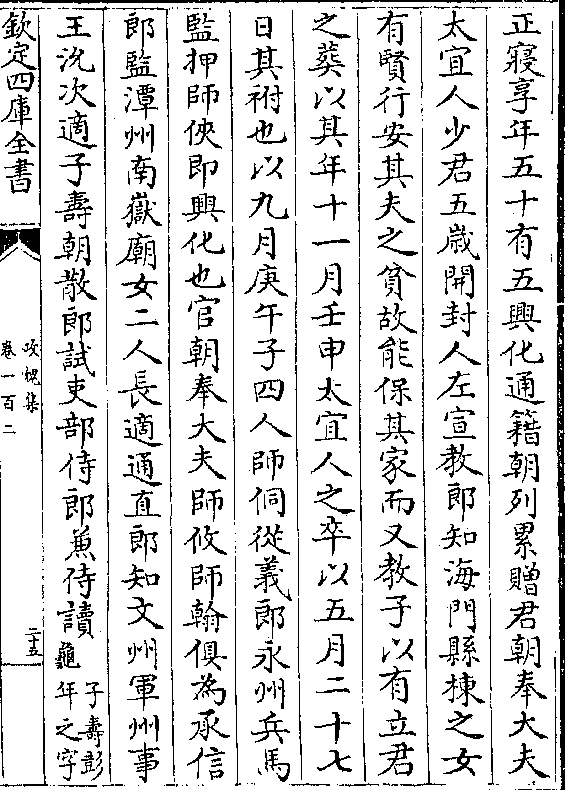 正寢享年五十有五興化通籍朝列累贈君朝奉大夫
太宜人少君五歲開封人左宣教郎知海門縣棟之女
有賢行安其夫之貧故能保其家而又教子以有立君
之葬以其年十一月壬申太宜人之卒以五月二十七
日其祔也以九月庚午子四人師侗從義郎永州兵馬
監押師俠即興化也官朝奉大夫師攸師翰俱為承信
郎監潭州南嶽廟女二人長適通直郎知文州軍州事
王沇次適子壽朝散郎試吏部侍郎兼侍讀
子壽彭
龜年之字
欽定四庫全書
攻媿集
卷一百二
二十五